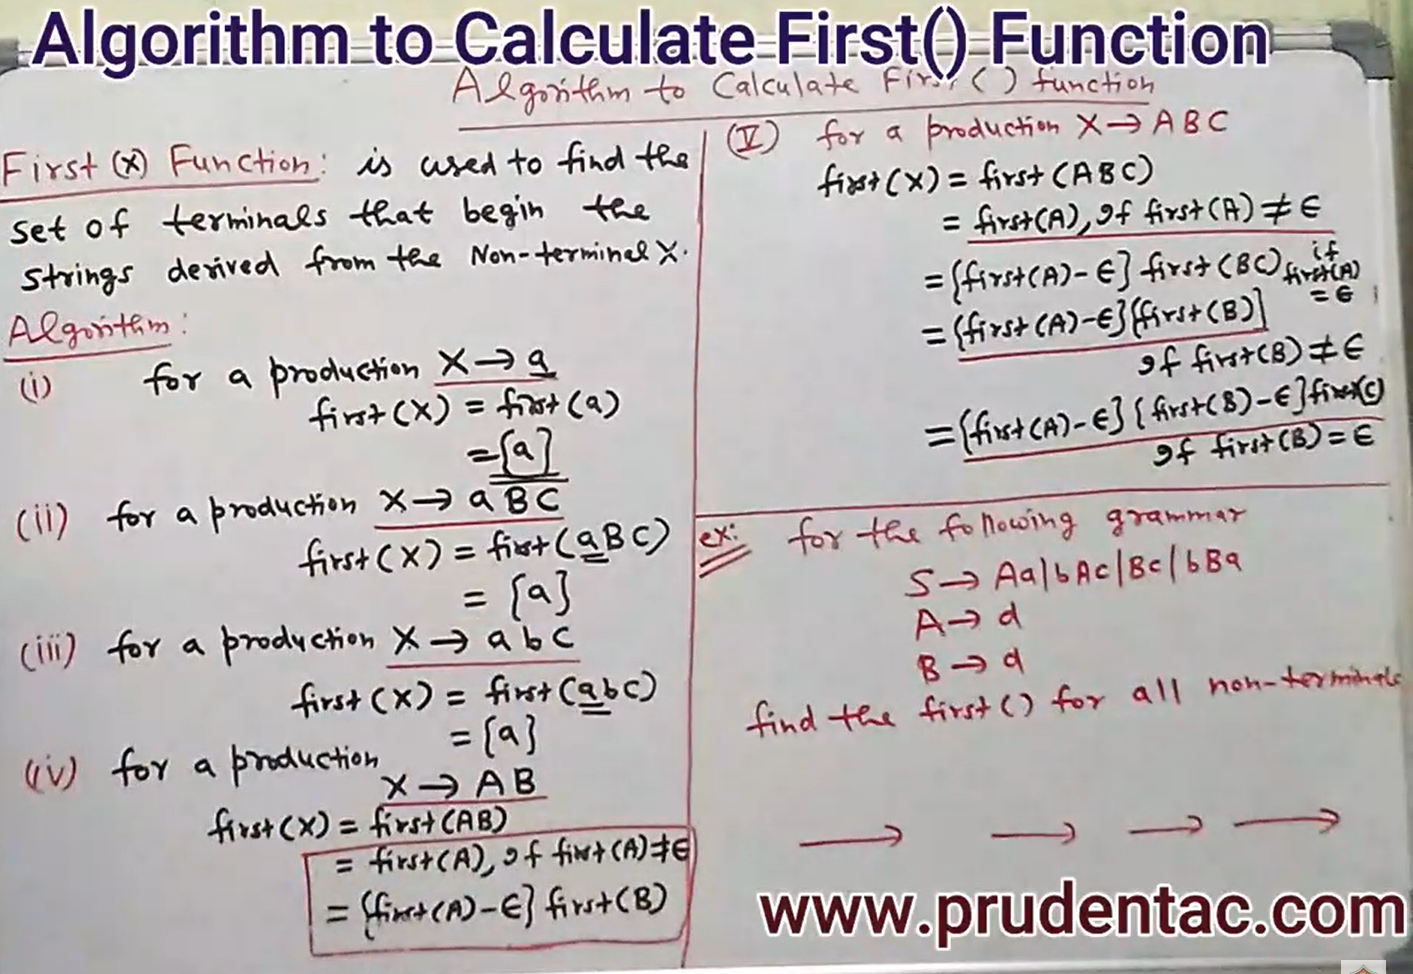 Algorithm to Calculate First() Function
Algorithm to Calculate First() function
First(x) Function: is used to find the
set of terminals that begin the
strings derived from the Non-terminal X.
Algorithm:
(i) for a production X→a
first(X) = first(a)
= {a}
(ii) for a production X→aBC
first(X) = first(aBC)
= {a}
(iii) for a production X→abC
first(X) = first(abC)
= {a}
(iv) for a production
X→AB
first(X) = first(AB)
= first(A), If first(A)≠ϵ
= {first(A)-ϵ} first(B)
(V) for a production X→ABC
first(X) = first(ABC)
= first(A), If first(A)≠ϵ
= {first(A)-ϵ} first(BC) if
first(A)
=ϵ
= {first(A)-ϵ}{first(B)}
If first(B)≠ϵ
= {first(A)-ϵ} {first(B)-ϵ} first(C)
If first(B)=ϵ
ex: for the following grammar
S→Aa|bAc|Bc|bBa
A→d
B→d
find the first() for all non-terminals
www.prudentac.com